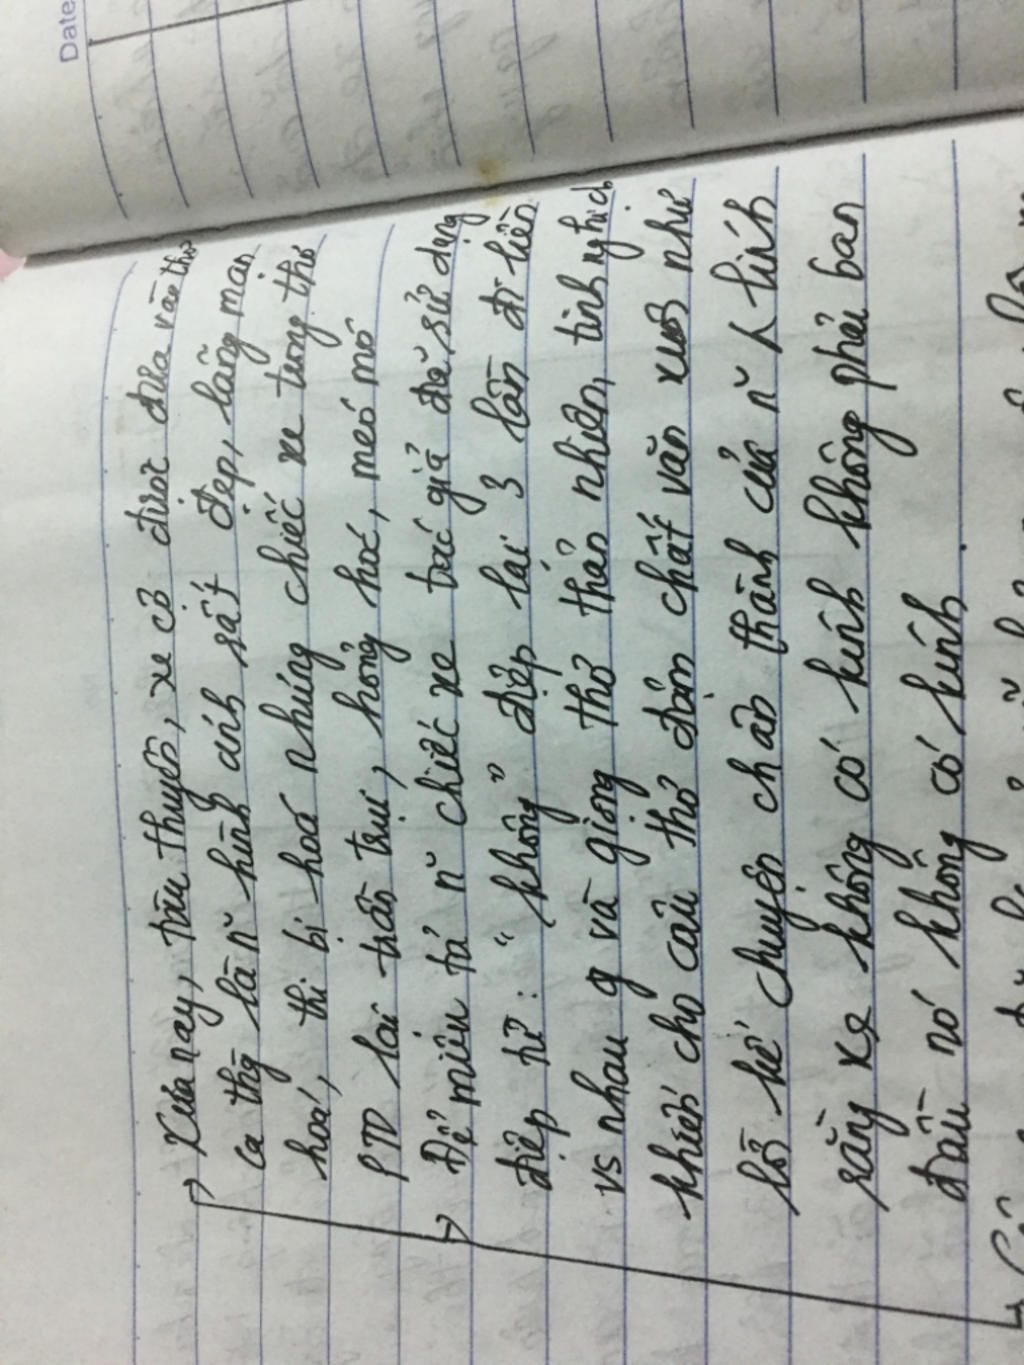 Date
→ Xưa nay, tàu thuyền, xe cộ được đưa vào thơ
ca thg là n~ hình ảnh rất đẹp, lãng mạn
hoá, thi bị hoá những chiếc xe trong thơ
PTD lại trần trụi, hỏng hóc, méo mó
→ Để miêu tả n~ chiếc xe tác giả đã sử dụng
điệp từ: "không" điệp lại 3 lần đi liền
vs nhau và giọng thơ thản nhiên, tinh nghịch
khiến cho câu thơ đậm chất văn xuôi như
lời kể chuyện chân thành của n~ lính
rằng xe không có kính không phải ban
đầu nó không có kính.